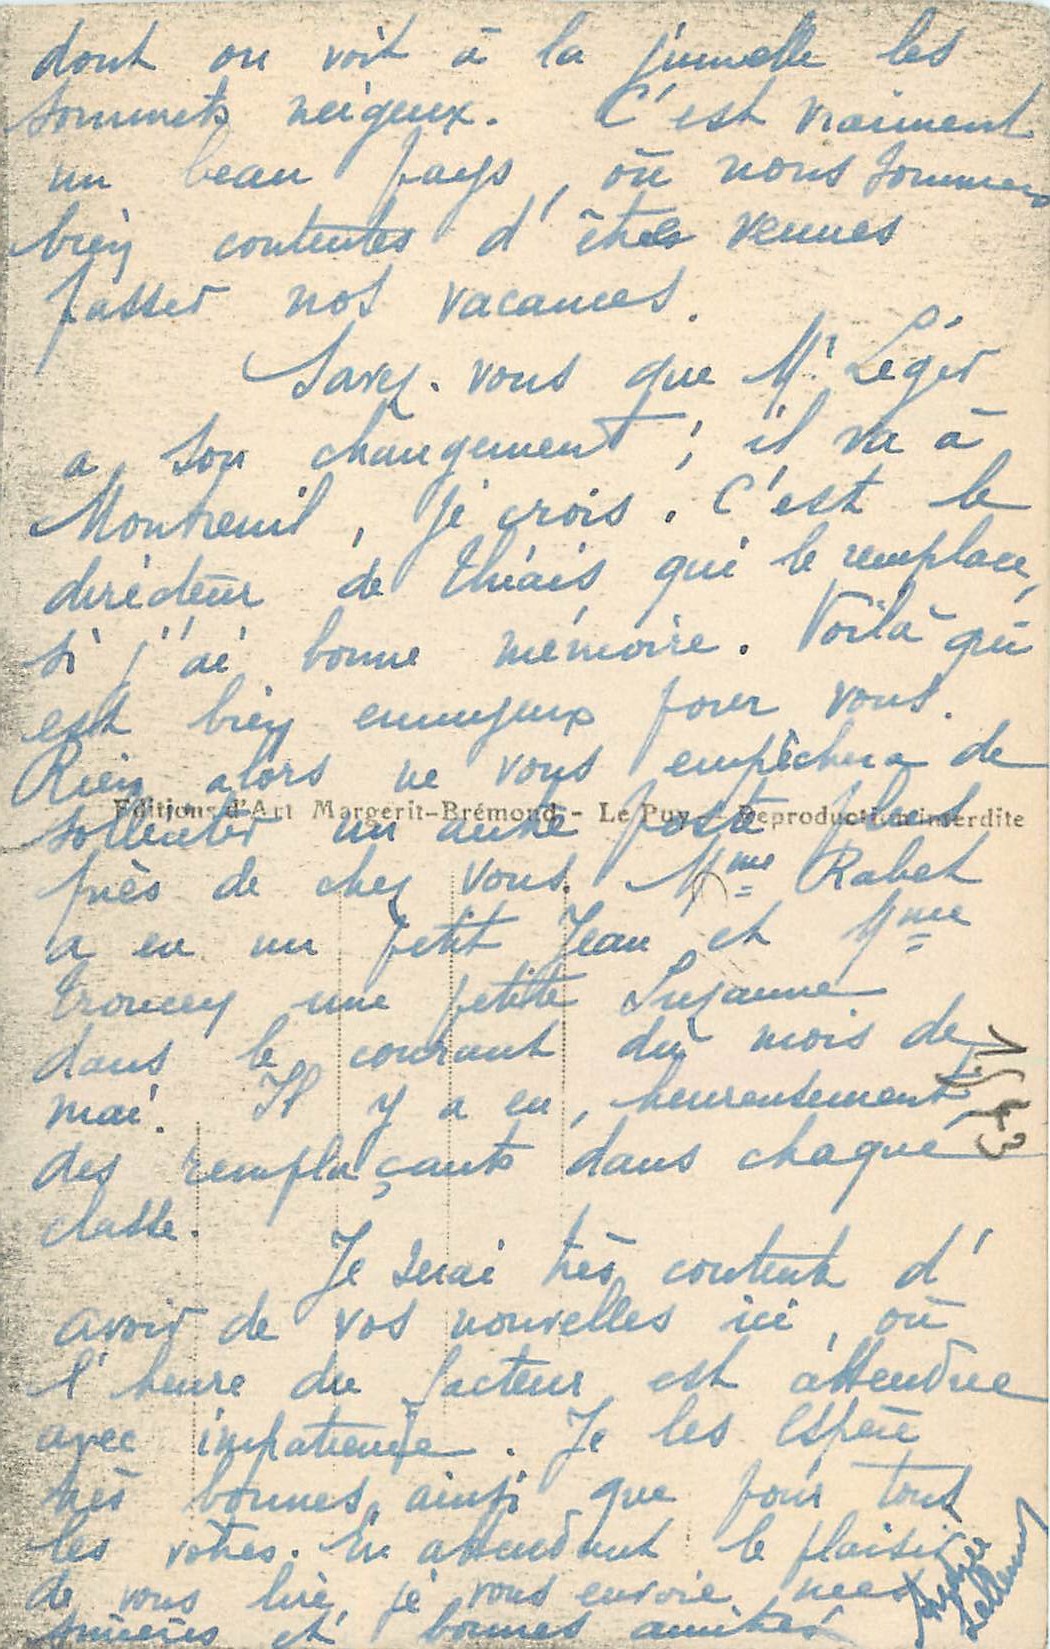 dont on voit à la jumelle les
sommets neigeux. C'est vraiment
un beau pays, où nous sommes
bien contentes d'être venues
passer nos vacances.
Savez-vous que Mr Léger
a son changement ; il va à
Montreuil, je crois. C'est le
directeur de Thiais qui le remplace,
si j'ai bonne mémoire. Voilà qui
est bien ennuyeux pour vous.
Rien alors ne vous empêchera de
Editions d'Art Margerit-Brémond - Le Puy - Reproduction interdite
solliciter un autre poste plus
près de chez vous. Mme Rabet
a eu un petit Jean et Mme
Troncey une petite Suzanne
dans le courant du mois de
mai. Il y a eu, heureusement,
des remplaçants dans chaque
classe.
Je serai très contente d'
avoir de vos nouvelles ici, où
l'heure du facteur est attendue
avec impatience. Je les espère
très bonnes, ainsi que pour tous
les vôtres. En attendant le plaisir
de vous lire je vous envoie mes
sincères et bonnes amitiés